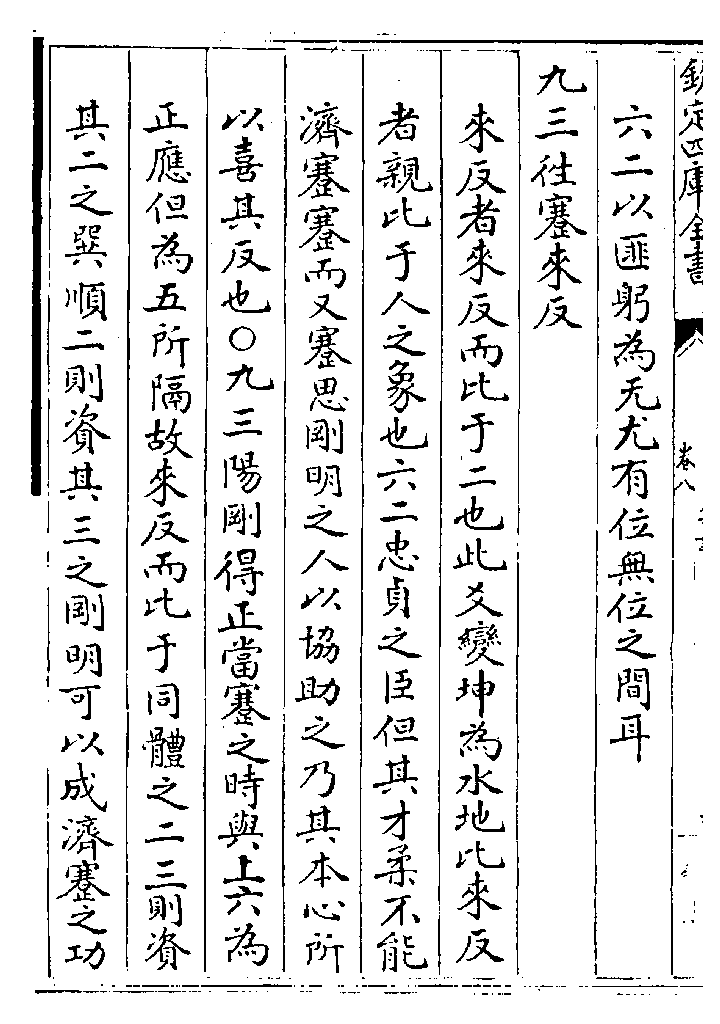 欽定四庫全書
卷八
六二以匪躬為无尤有位無位之間耳
九三往蹇來反
來反者來反而比于二也此爻變坤為水地比來反
者親比于人之象也六二忠貞之臣但其才柔不能
濟蹇蹇而又蹇思剛明之人以協助之乃其本心所
以喜其反也○九三陽剛得正當蹇之時與上六為
正應但為五所隔故來反而比于同體之二三則資
其二之巽順二則資其三之剛明可以成濟蹇之功